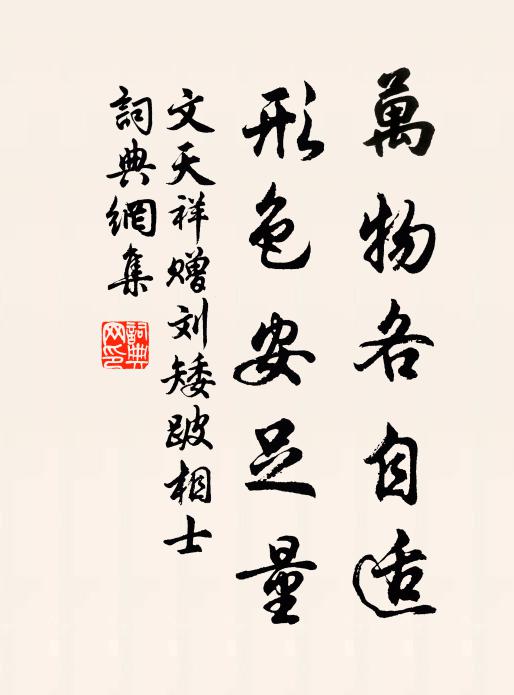 萬物各自适
形色安足量
文天祥赠刘矮跛相士
詞典網集
詞典网印